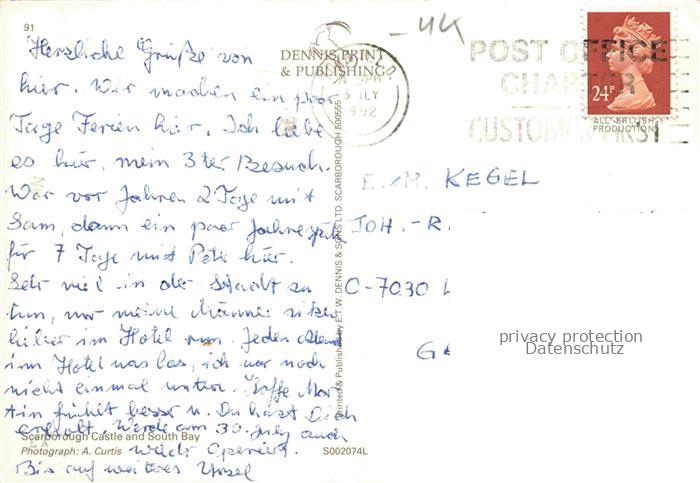 91
Herzliche Grüße von
hier. Wir machen ein paar
Tage Ferien hier. Ich liebe
es hier, mein 3ter Besuch.
War vor Jahren 2 Tage mit
Sam, dann ein paar Jahre spät
für 7 Tage mit Peter hier.
Sehr viel in der Stadt zu
tun, nur meine Männer sitzen
lieber im Hotel rum. Jeden Abend
im Hotel was los, ich war noch
nicht einmal unten. Hoffe Mar-
tin fühlt besser u. Du hast Dich
erholt. Werde am 30. July auch
wieder operiert.
Bis auf weiteres Ursel
Scarborough Castle and South Bay
Photograph: A. Curtis
S002074L
DENNIS PRINT
& PUBLISHING
Printed & Published by E.T.W. DENNIS & SONS LTD. SCARBOROUGH 500555
- UK
JLY
1992
POST OFFICE
CHARTER
CUSTOMER FIRST
24P
ALL BRITISH
PRODUCTION
E. & M. KEGEL
JOH. - R.
O-7030 L
privacy protection
Datenschutz